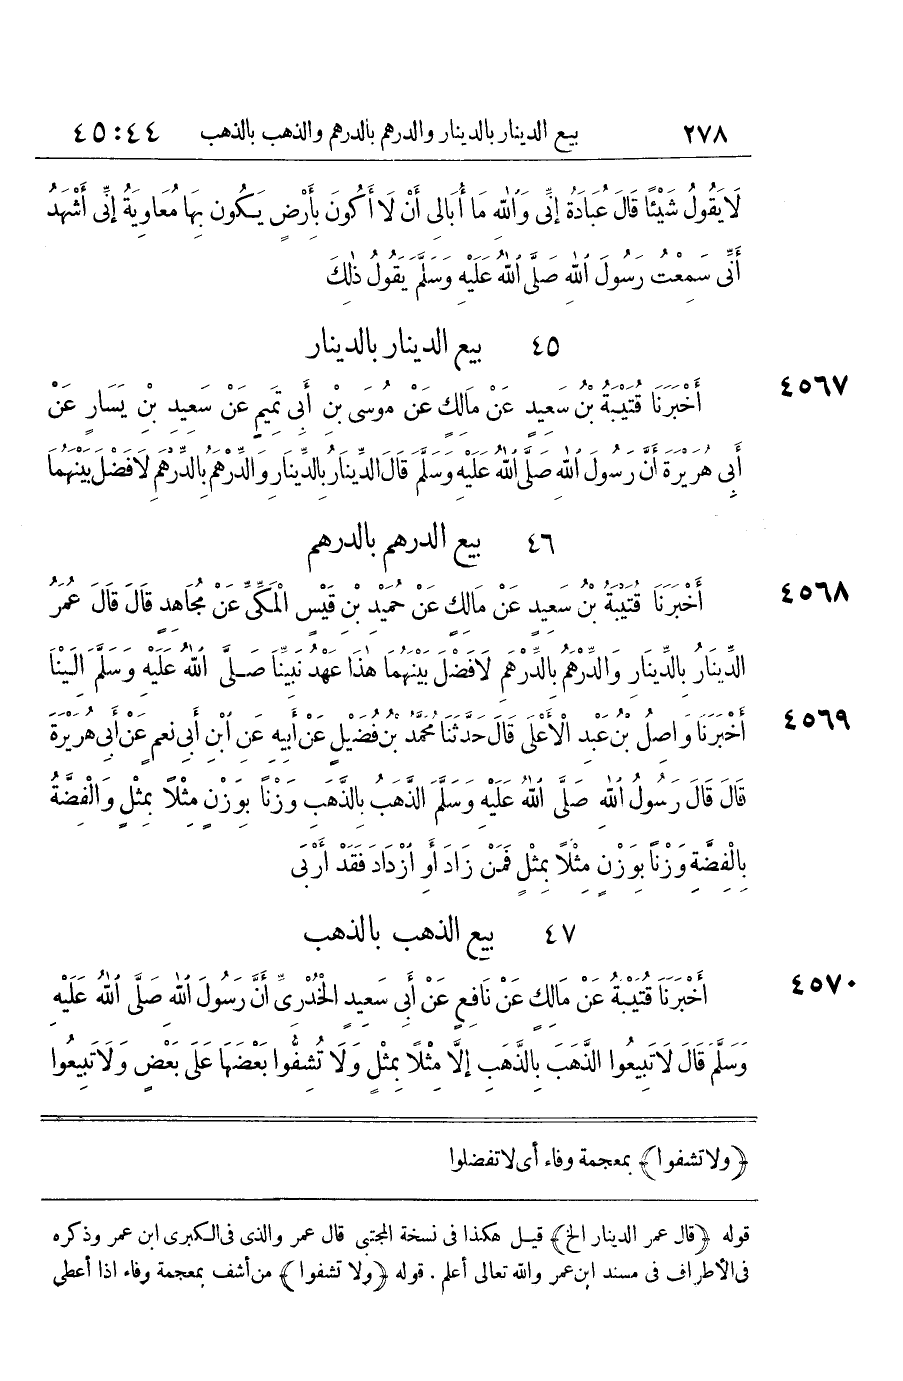 ٢٧٨ بيع الدينار بالدينار والدرهم بالدرهم والذهب بالذهب ٤٤:٤٥
لَا يَقُولُ شَيْئًا قَالَ عُبَادَةُ إِنِّى وَٱللهِ مَا أُبَالِى أَنْ لَا أَكُونَ بِأَرْضٍ يَكُونُ بِهَا مُعَاوِيَةُ إِنِّى أَشْهَدُ
أَنِّى سَمِعْتُ رَسُولَ ٱللهِ صَلَّى ٱللهُ عَلَيْهِ وَسَلَّمَ يَقُولُ ذٰلِكَ
٤٥ بيع الدينار بالدينار
٤٥٦٧ أَخْبَرَنَا قُتَيْبَةُ بْنُ سَعِيدٍ عَنْ مَالِكٍ عَنْ مُوسَى بْنِ أَبِى تَمِيمٍ عَنْ سَعِيدِ بْنِ يَسَارٍ عَنْ
أَبِى هُرَيْرَةَ أَنَّ رَسُولَ ٱللهِ صَلَّى ٱللهُ عَلَيْهِ وَسَلَّمَ قَالَ الدِّينَارُ بِالدِّينَارِ وَالدِّرْهَمُ بِالدِّرْهَمِ لَا فَضْلَ بَيْنَهُمَا
٤٦ بيع الدرهم بالدرهم
٤٥٦٨ أَخْبَرَنَا قُتَيْبَةُ بْنُ سَعِيدٍ عَنْ مَالِكٍ عَنْ حُمَيْدِ بْنِ قَيْسٍ الْمَكِّىِّ عَنْ مُجَاهِدٍ قَالَ قَالَ عُمَرُ
الدِّينَارُ بِالدِّينَارِ وَالدِّرْهَمُ بِالدِّرْهَمِ لَا فَضْلَ بَيْنَهُمَا هٰذَا عَهْدُ نَبِيِّنَا صَلَّى ٱللهُ عَلَيْهِ وَسَلَّمَ إِلَيْنَا
٤٥٦٩ أَخْبَرَنَا وَاصِلُ بْنُ عَبْدِ الْأَعْلَى قَالَ حَدَّثَنَا مُحَمَّدُ بْنُ فُضَيْلٍ عَنْ أَبِيهِ عَنِ ٱبْنِ أَبِى نُعْمٍ عَنْ أَبِى هُرَيْرَةَ
قَالَ قَالَ رَسُولُ ٱللهِ صَلَّى ٱللهُ عَلَيْهِ وَسَلَّمَ الذَّهَبُ بِالذَّهَبِ وَزْنًا بِوَزْنٍ مِثْلًا بِمِثْلٍ وَالْفِضَّةُ
بِالْفِضَّةِ وَزْنًا بِوَزْنٍ مِثْلًا بِمِثْلٍ فَمَنْ زَادَ أَوِ ٱزْدَادَ فَقَدْ أَرْبَى
٤٧ بيع الذهب بالذهب
٤٥٧٠ أَخْبَرَنَا قُتَيْبَةُ عَنْ مَالِكٍ عَنْ نَافِعٍ عَنْ أَبِى سَعِيدٍ الْخُدْرِىِّ أَنَّ رَسُولَ ٱللهِ صَلَّى ٱللهُ عَلَيْهِ
وَسَلَّمَ قَالَ لَا تَبِيعُوا الذَّهَبَ بِالذَّهَبِ إِلَّا مِثْلًا بِمِثْلٍ وَلَا تُشِفُّوا بَعْضَهَا عَلَى بَعْضٍ وَلَا تَبِيعُوا
﴿ولا تشفوا﴾ بمعجمة وفاء أى لا تفضلوا
قوله ﴿قال عمر الدينار الخ﴾ قيل هكذا فى نسخة المجتبى قال عمر والذى فى الكبرى ابن عمر وذكره
فى الأطراف فى مسند ابن عمر والله تعالى أعلم . قوله ﴿ولا تشفوا﴾ من أشف بمعجمة وفاء اذا أعطى